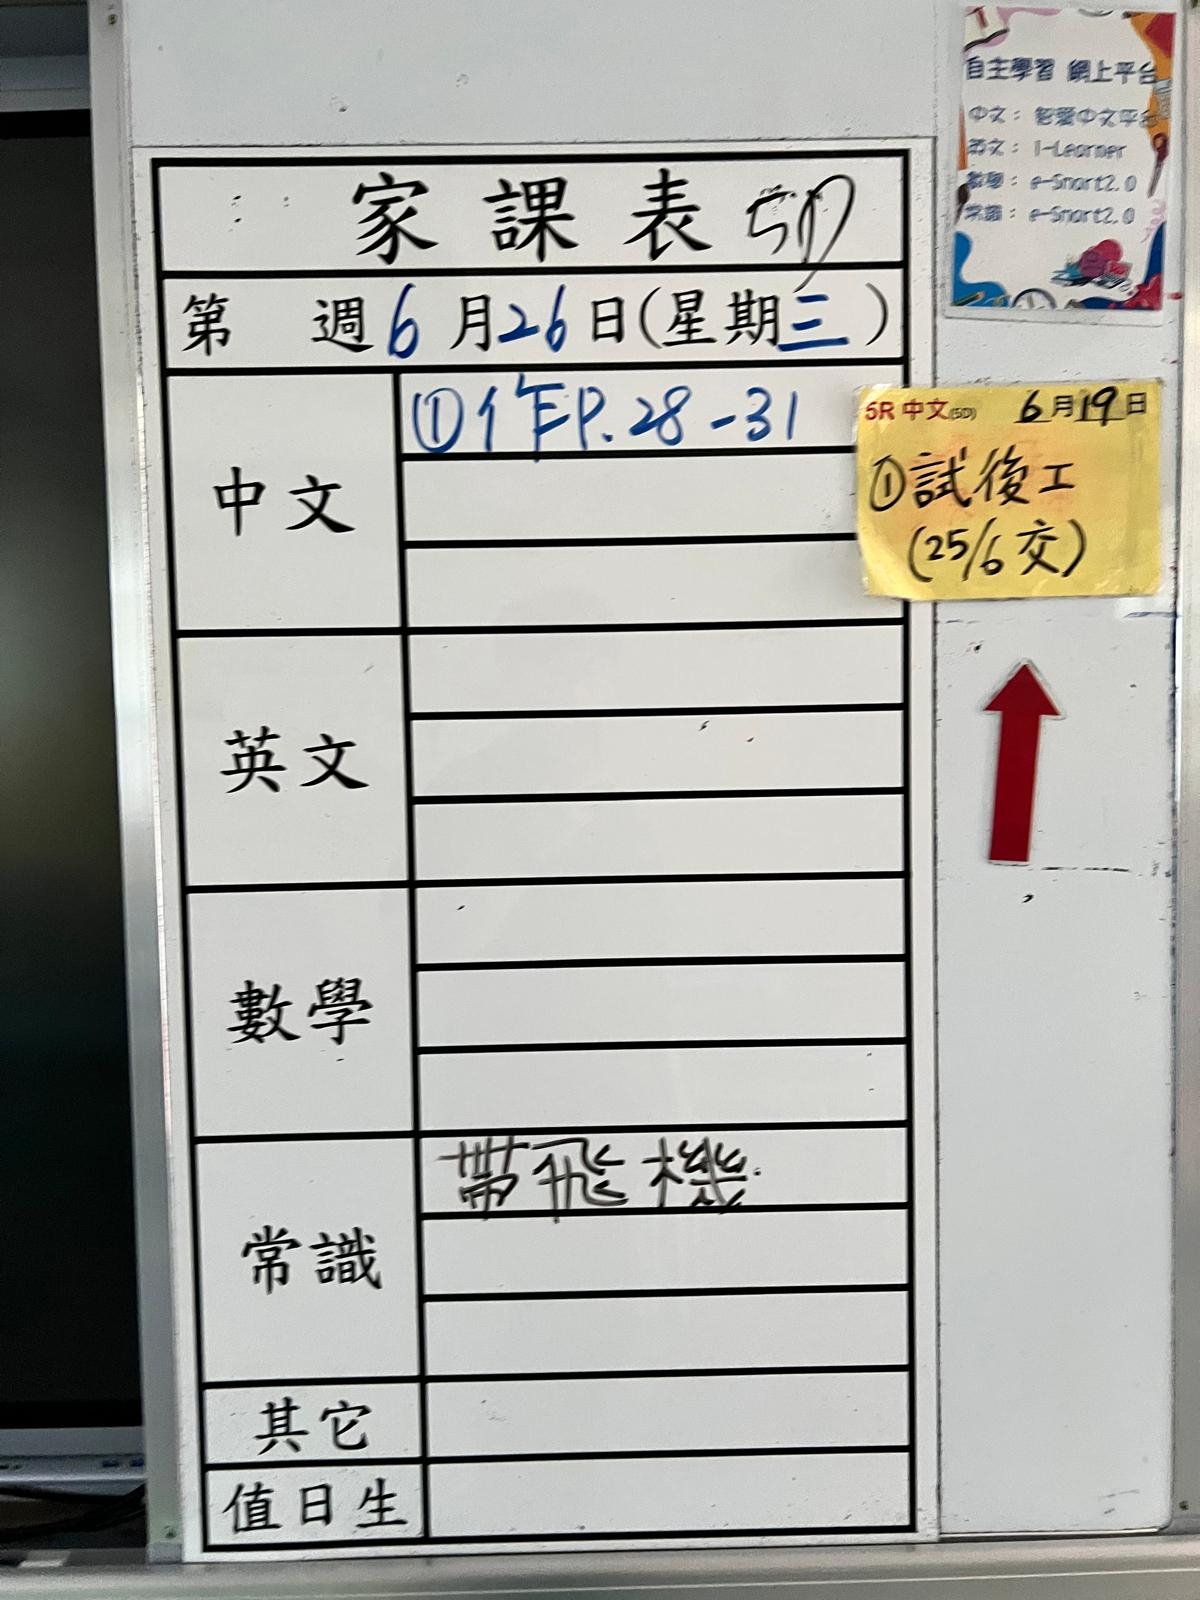 家課表 5D
第 週 6月26日(星期三)
中文
①作P.28-31
英文
數學
常識
帶飛機
其它
值日生
自主學習 網上平台
中文: 智愛中文平台
英文: I-Learner
數學: e-Smart2.0
常識: e-Smart2.0
5R 中文(5D) 6月19日
①試後工
(25/6 交)